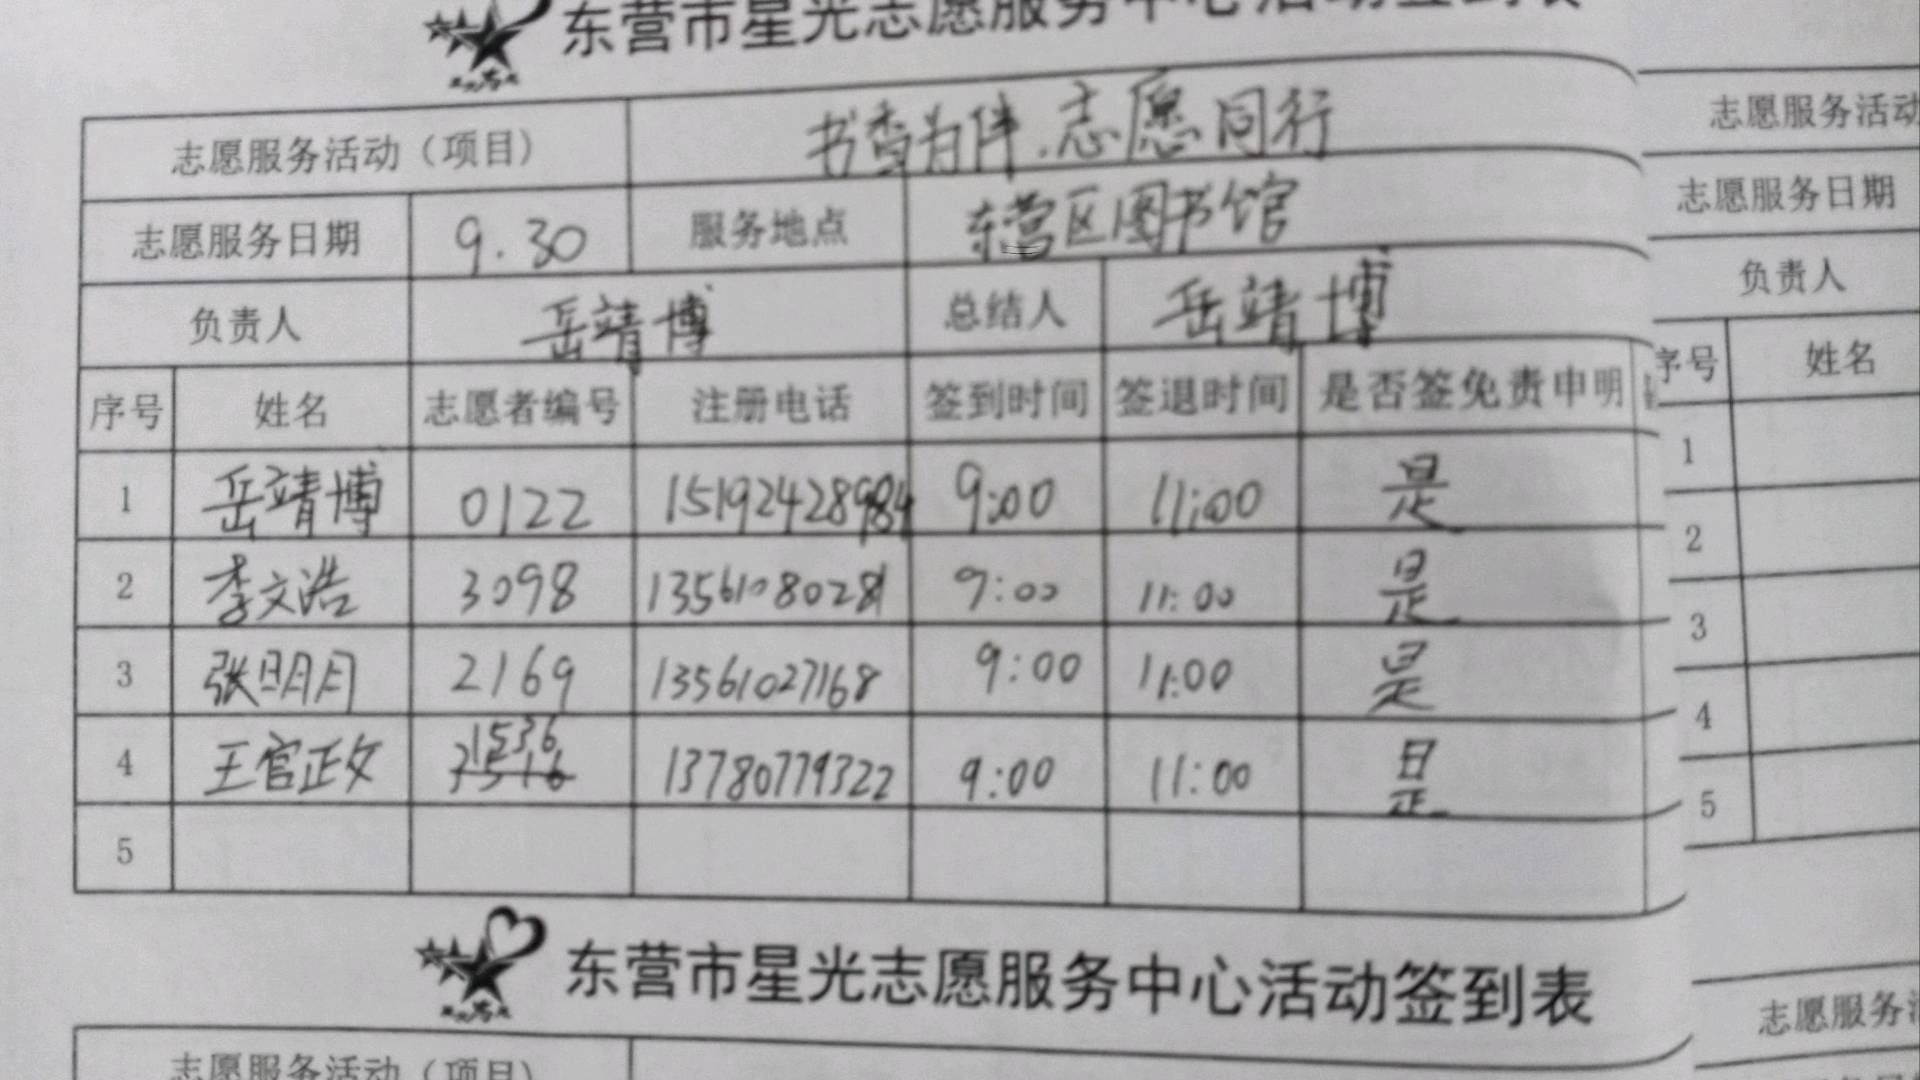 东营市星光志愿服务中心活动签到表
志愿服务活动（项目） 书香为伴.志愿同行
志愿服务日期 9.30 服务地点 东营区图书馆
负责人 岳靖博 总结人 岳靖博
序号 姓名 志愿者编号 注册电话 签到时间 签退时间 是否签免责申明
1 岳靖博 0122 15192428984 9:00 11:00 是
2 李文浩 3098 13561080281 9:00 11:00 是
3 张明月 2169 13561027168 9:00 11:00 是
4 王官正文 1536 13780779322 9:00 11:00 是
5
东营市星光志愿服务中心活动签到表
志愿服务活动（项目）
志愿服务活动
志愿服务日期
负责人
序号 姓名
1
2
3
4
5
志愿服务